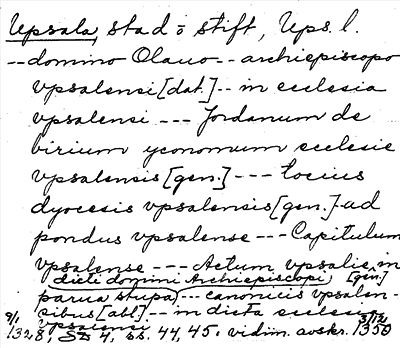 Upsala, stad o stift, Ups. l.
--domino Olauo-- archiepiscopo
vpsalensi [dat.] -- in ecclesia
vpsalensi --- Jordanum de
birium yconomum ecclesie
vpsalensis [gen.] --- tocius
dyocesis vpsalensis [gen.]-ad
pondus vpsalense --- Capitulum
vpsalense --- Actum vpsalie in
dicti domini Archiepiscopi [gen.]
parua stupa, --- canonicis vpsalen-
sibus [abl.] -- in dicta ecclesia
vpsalensi
9/1 1328, SD 4, bs. 44, 45. vidim. avskr. 3/12 1350